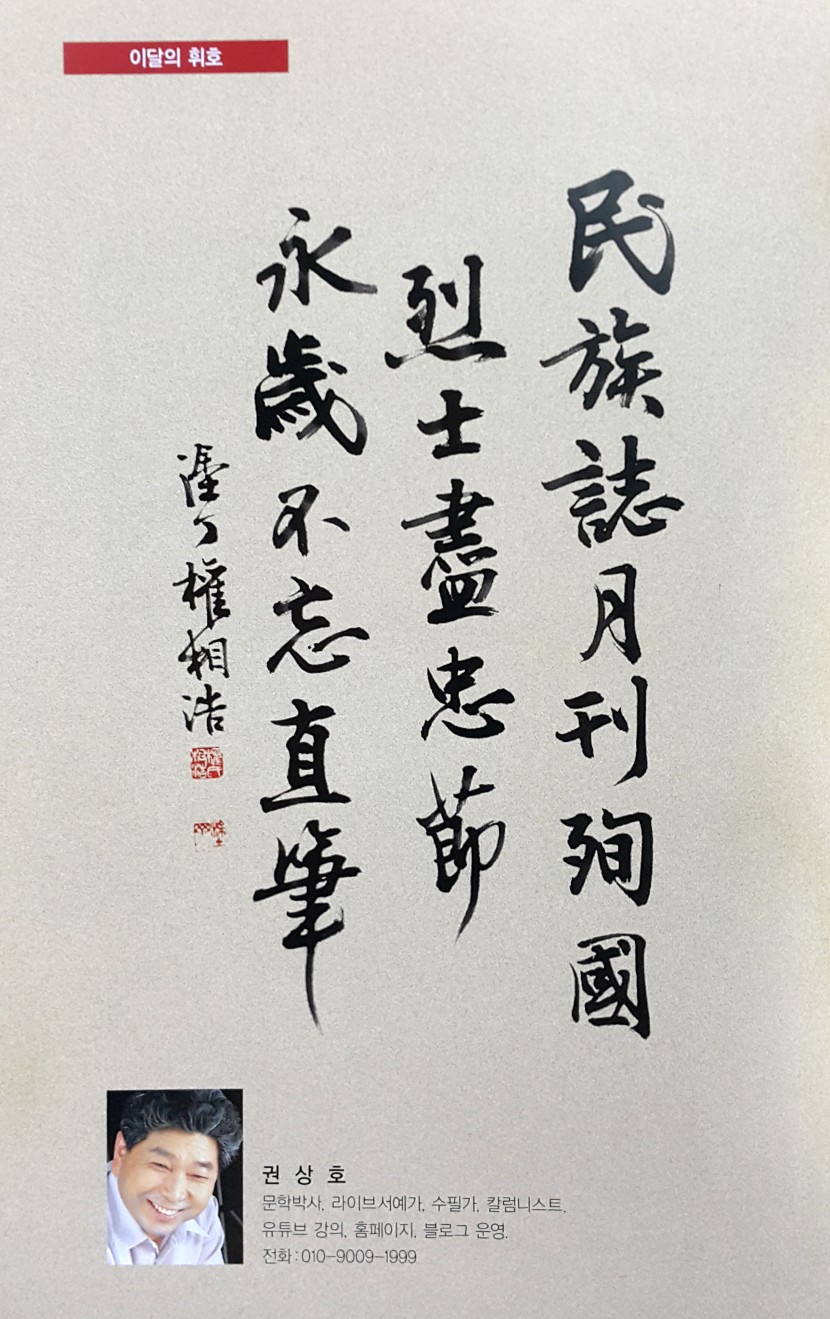 이달의 휘호
民族誌月刊殉國
烈士盡忠節
永歲不忘直筆
權相浩
권 상 호
문학박사, 라이브서예가, 수필가, 칼럼니스트,
유튜브 강의, 홈페이지, 블로그 운영.
전화:010-9009-1999